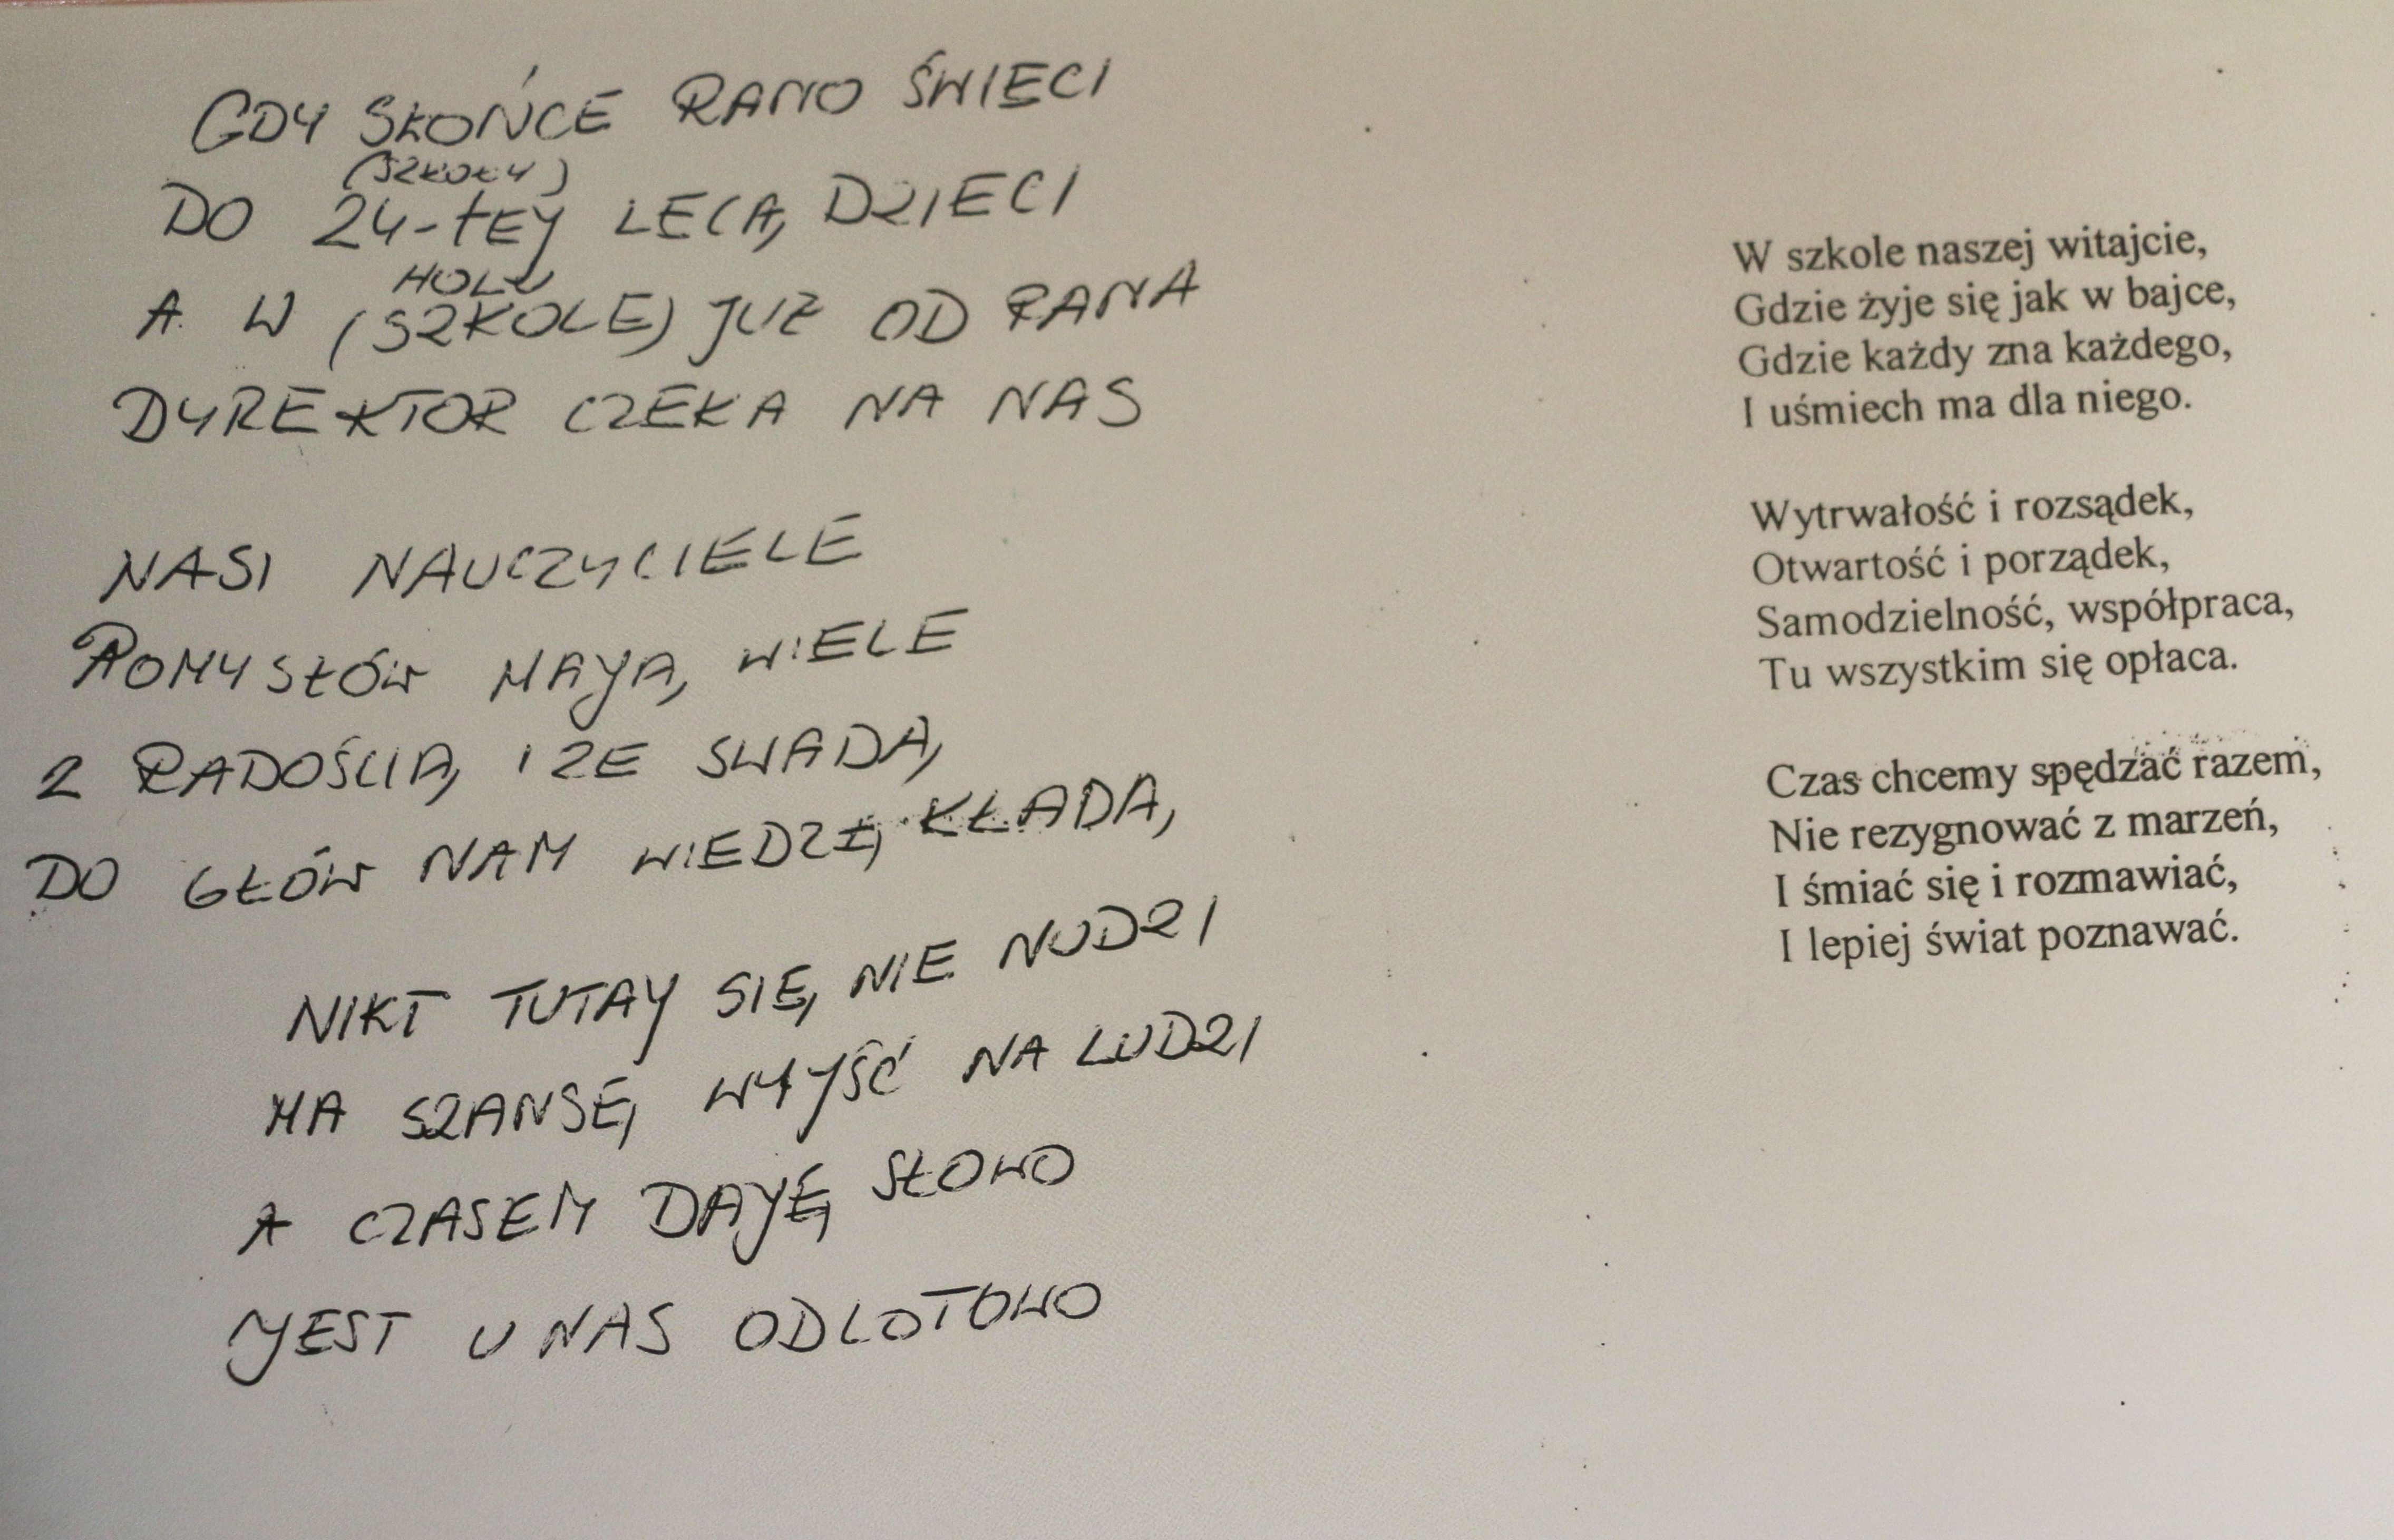 GDY SŁOŃCE RANO ŚWIECI
(SZKOŁY)
DO 24-TEJ LECĄ DZIECI
HOLU
A W (SZKOLE) JUŻ OD RANA
DYREKTOR CZEKA NA NAS
NASI NAUCZYCIELE
POMYSŁÓW MAJĄ WIELE
Z RADOŚCIĄ I ZE SWADĄ
DO GŁÓW NAM WIEDZĘ KŁADĄ
NIKT TUTAJ SIĘ NIE NUDZI
MA SZANSĘ WYJŚĆ NA LUDZI
A CZASEM DAJĘ SŁOWO
JEST U NAS ODLOTOWO
W szkole naszej witajcie,
Gdzie żyje się jak w bajce,
Gdzie każdy zna każdego,
I uśmiech ma dla niego.
Wytrwałość i rozsądek,
Otwartość i porządek,
Samodzielność, współpraca,
Tu wszystkim się opłaca.
Czas chcemy spędzać razem,
Nie rezygnować z marzeń,
I śmiać się i rozmawiać,
I lepiej świat poznawać.